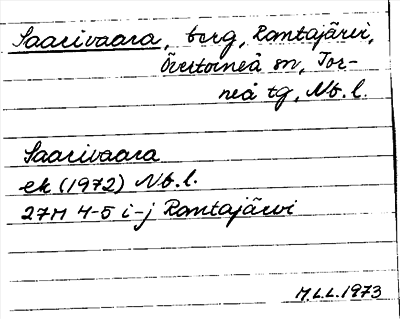 Saarivaara, berg, Rantajärvi,
Övertorneå sn, Tor-
neå tg, Nb. l.
Saarivaara
ek (1972) Nb. l.
27M 4-5 i-j Rantajärvi
M.L.L. 1973